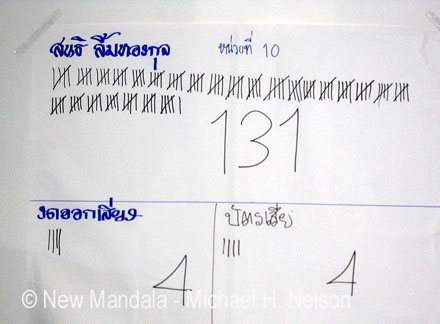 สนธิ ลิ้มทองกุล หน่วยที่ 10
131
งดออกเสียง บัตรเสีย
4 4
© New Mandala - Michael H. Nelson